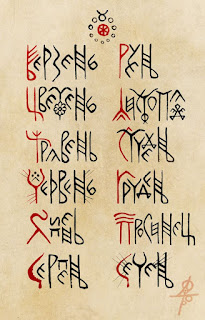 Берзень
Цветень
Травень
Червень
Липень
Серпень
Руень
Листопад
Студень
Грудень
Просинец
Сечень